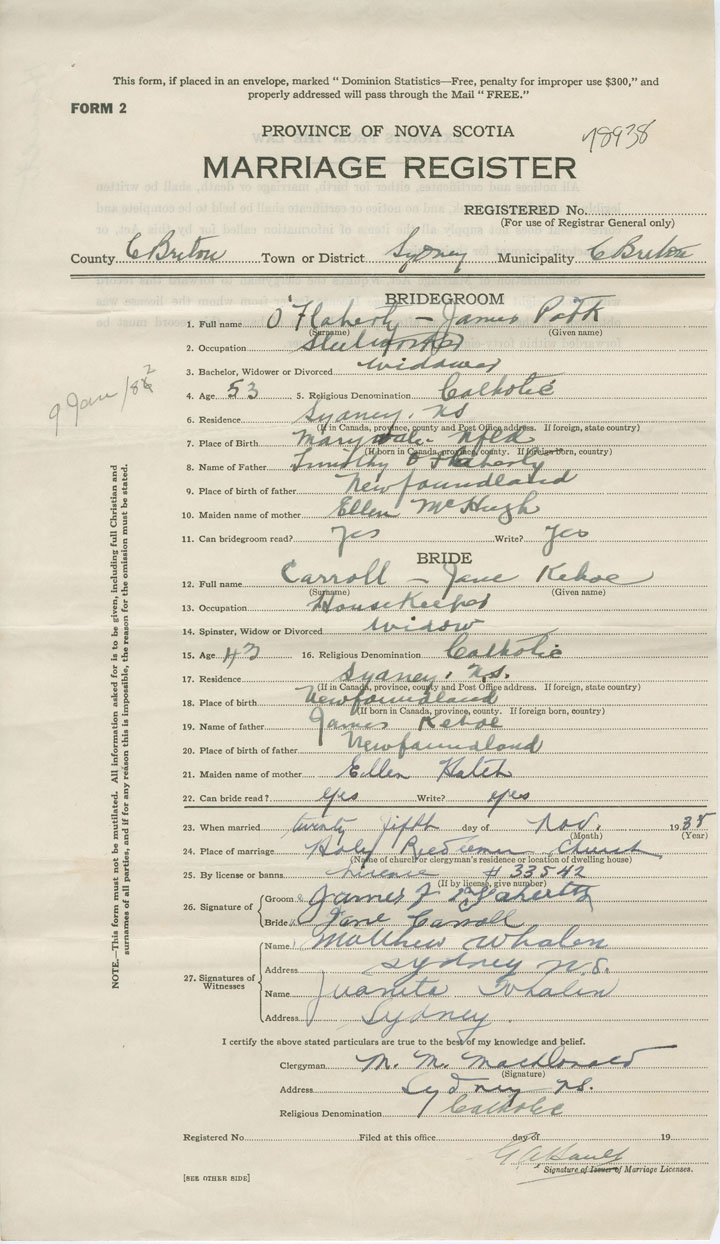 This form, if placed in an envelope, marked “ Dominion Statistics—Free, penalty for improper use $300,” and
properly addressed will pass through the Mail “ FREE.”
FORM 2
PROVINCE OF NOVA SCOTIA
78938
MARRIAGE REGISTER
REGISTERED No.
(For use of Registrar General only)
County C Breton Town or District Sydney Municipality C Breton
BRIDEGROOM
1. Full name O'Flaherty – James Patk
(Surname) (Given name)
2. Occupation Steelworker
3. Bachelor, Widower or Divorced widower
9 Jan /82
4. Age 53 5. Religious Denomination Catholic
6. Residence Sydney, NS
(If in Canada, province, county and Post Office address. If foreign, state country)
7. Place of Birth Marysvale Nfld
(If born in Canada, province, county. If foreign born, country)
8. Name of Father Timothy O'Flaherty
9. Place of birth of father Newfoundland
10. Maiden name of mother Ellen McHugh
11. Can bridegroom read? Yes Write? Yes
BRIDE
12. Full name Carroll – Jane Kehoe
(Surname) (Given name)
13. Occupation Housekeeper
14. Spinster, Widow or Divorced widow
15. Age 43 16. Religious Denomination Catholic
17. Residence Sydney, N.S.
(If in Canada, province, county and Post Office address. If foreign, state country)
18. Place of birth Newfoundland
(If born in Canada, province, county. If foreign born, country)
19. Name of father James Kehoe
20. Place of birth of father Newfoundland
21. Maiden name of mother Ellen
22. Can bride read? yes Write? yes
23. When married twenty fifth day of Nov. 1935
(Month) (Year)
24. Place of marriage Holy Redeemer Church
(Name of church or clergyman's residence or location of dwelling house)
25. By license or banns License # 33542
(If by license, give number)
26. Signature of
Groom James J O'Flaherty
Bride Jane Carroll
27. Signatures of Witnesses
Name Matthew Whalen
Address Sydney N.S.
Name Juanita Whalen
Address Sydney
I certify the above stated particulars are true to the best of my knowledge and belief.
Clergyman M. M. MacDonald
(Signature)
Address Sydney NS.
Religious Denomination Catholic
Registered No. Filed at this office day of 19
Signature of Issuer of Marriage Licenses.
[SEE OTHER SIDE]
NOTE.—This form must not be mutilated. All information asked for is to be given, including full Christian and
surnames of all parties, and if for any reason this is impossible, the reason for the omission must be stated.